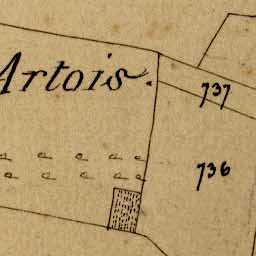 Artois.
737
736